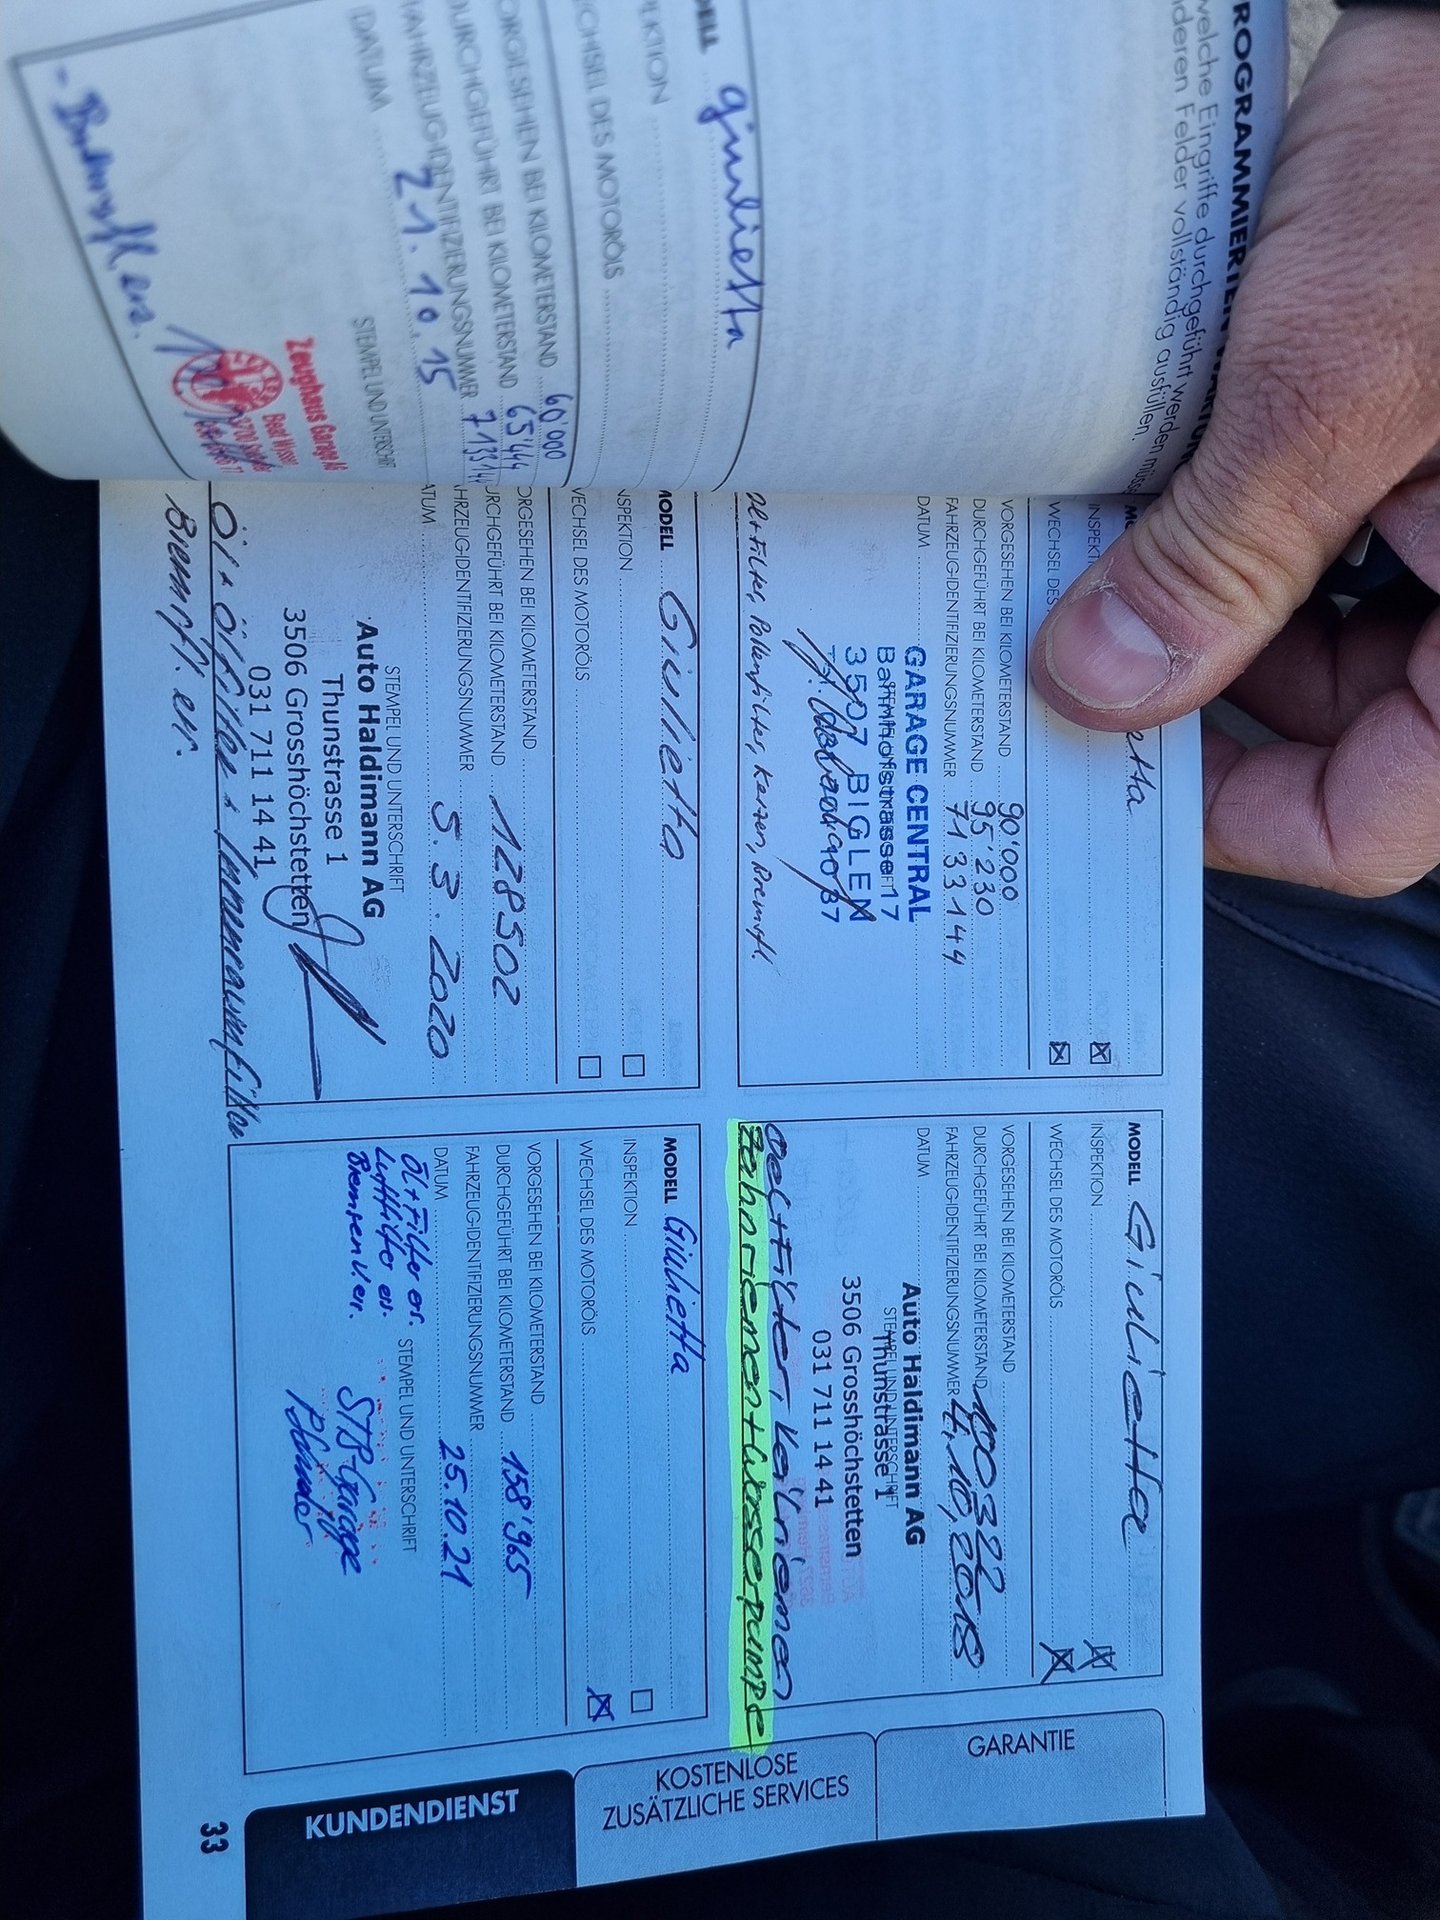 ROGRAMMIERTEN WARTUNG
welche Eingriffe durchgeführt werden müss
nderen Felder vollständig ausfüllen.
DELL giulietta
EKTION
ECHSEL DES MOTORÖLS
ORGESEHEN BEI KILOMETERSTAND 60'000
DURCHGEFÜHRT BEI KILOMETERSTAND 65'444
FAHRZEUGIDENTIFIZIERUNGSNUMMER 7133144
DATUM 21.10.15
STEMPEL UND UNTERSCHRIFT
Zeughaus Garage AG
Beat Wisser
- Bremsfl. ers.
INSPEKT
WECHSEL DES
etta
VORGESEHEN BEI KILOMETERSTAND 90'000
DURCHGEFÜHRT BEI KILOMETERSTAND 95'230
FAHRZEUGIDENTIFIZIERUNGSNUMMER 7133144
DATUM
GARAGE CENTRAL
Bahnhofstrasse 17
3507 BIGLEN
Oel+Filter, Pollenfilter, Kerzen, Bremsfl.
MODELL Giulietta
INSPEKTION
WECHSEL DES MOTORÖLS
VORGESEHEN BEI KILOMETERSTAND
DURCHGEFÜHRT BEI KILOMETERSTAND 100322
FAHRZEUGIDENTIFIZIERUNGSNUMMER
DATUM 4,10,2018
STEMPEL UND UNTERSCHRIFT
Auto Haldimann AG
Thunstrasse 1
3506 Grosshöchstetten
031 711 14 41
Oel+Filter, Keilriemen
Zahnriemen+Wasserpumpe
MODELL Giulietta
INSPEKTION
WECHSEL DES MOTORÖLS
VORGESEHEN BEI KILOMETERSTAND
DURCHGEFÜHRT BEI KILOMETERSTAND 128502
FAHRZEUGIDENTIFIZIERUNGSNUMMER
DATUM 5.3.2020
STEMPEL UND UNTERSCHRIFT
Auto Haldimann AG
Thunstrasse 1
3506 Grosshöchstetten
031 711 14 41
Öl + Ölfilter + Innenraumfilter
Bremfl. er.
MODELL Giulietta
INSPEKTION
WECHSEL DES MOTORÖLS
VORGESEHEN BEI KILOMETERSTAND
DURCHGEFÜHRT BEI KILOMETERSTAND 158'965
FAHRZEUGIDENTIFIZIERUNGSNUMMER
DATUM 25.10.21
ÖL+Filter er.
Luftfilter er.
Bremsen v. er.
STEMPEL UND UNTERSCHRIFT
STB-Garage
GARANTIE
KOSTENLOSE
ZUSÄTZLICHE SERVICES
KUNDENDIENST
33